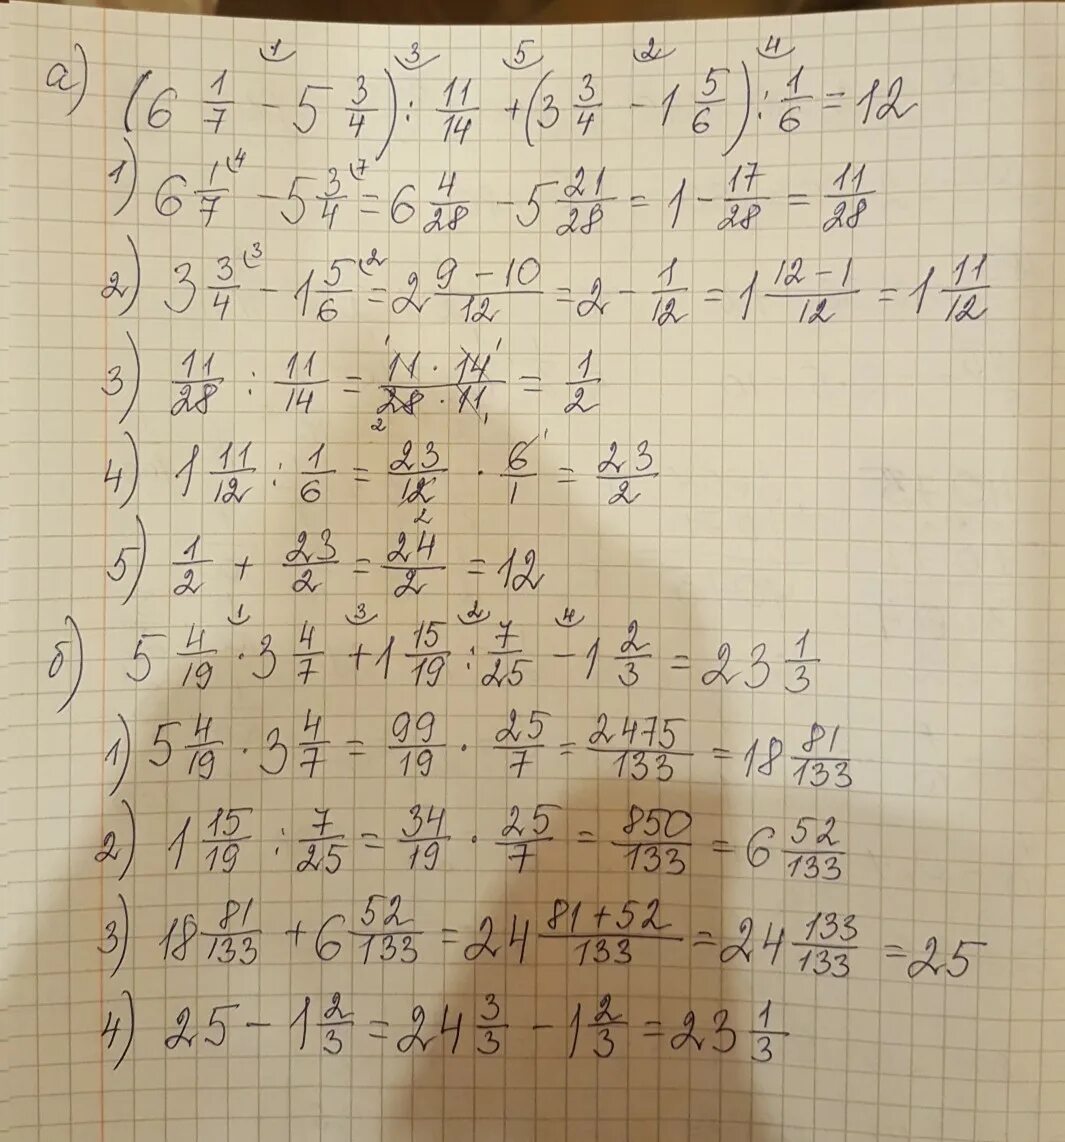 а) (6 1/7 - 5 3/4) : 11/14 + (3 3/4 - 1 5/6) : 1/6 = 12
1) 6 1/7 - 5 3/4 = 6 4/28 - 5 21/28 = 1 - 17/28 = 11/28
2) 3 3/4 - 1 5/6 = 2 (9 - 10)/12 = 2 - 1/12 = 1 (12 - 1)/12 = 1 11/12
3) 11/28 : 11/14 = (11 · 14)/(28 · 11) = 1/2
4) 1 11/12 : 1/6 = 23/12 · 6/1 = 23/2
5) 1/2 + 23/2 = 24/2 = 12
б) 5 4/19 · 3 4/7 + 1 15/19 : 7/25 - 1 2/3 = 23 1/3
1) 5 4/19 · 3 4/7 = 99/19 · 25/7 = 2475/133 = 18 81/133
2) 1 15/19 : 7/25 = 34/19 · 25/7 = 850/133 = 6 52/133
3) 18 81/133 + 6 52/133 = 24 (81 + 52)/133 = 24 133/133 = 25
4) 25 - 1 2/3 = 24 3/3 - 1 2/3 = 23 1/3